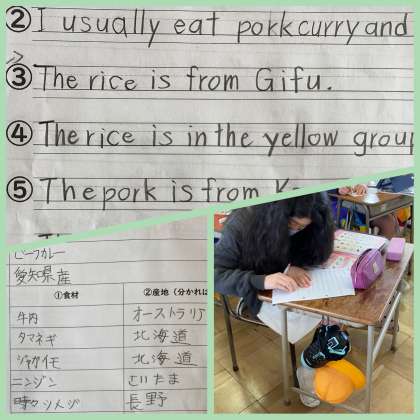 ② I usually eat pork curry and
③ The rice is from Gifu.
④ The rice is in the yellow group
⑤ The pork is from
ビーフカレー
愛知県産
①食材 ②産地（分かれば
牛肉 オーストラリア
タマネギ 北海道
ジャガイモ 北海道
ニンジン さいたま
長野